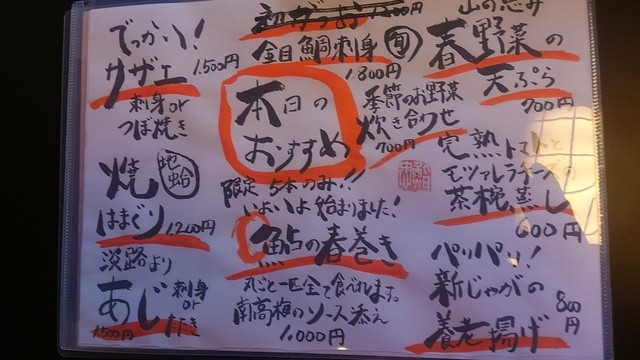 山の恵み
春野菜の
天ぷら
700円
完熟トマトと
モッツァレラチーズの
茶椀蒸し
600円
パリパリ!
新じゃがの
養老揚げ
800円
初がつお
金目鯛刺身 旬
1,800円
季節のお野菜
炊き合わせ
700円
本日の
おすすめ
限定5本のみ!!
いよいよ始まりました!
鮎の春巻き
丸ごと一匹全て食べれます。
南高梅のソース添え
1,000円
でっかい!
サザエ 1,500円
刺身or
つぼ焼き
焼 地蛤
はまぐり 1,200円
淡路より
あじ 刺身
or
たたき
1,500円